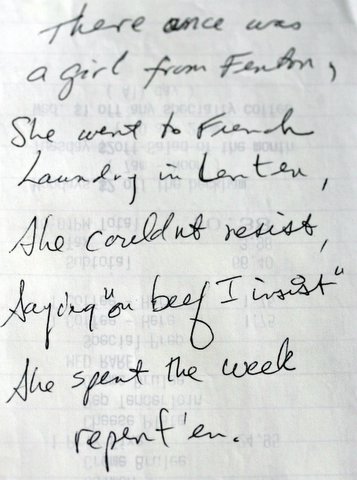 There once was
a girl from Fenton,
She went to French
Laundry in Lenten,
She couldn't resist,
Saying "on beef I insist"
She spent the week
repent'en.